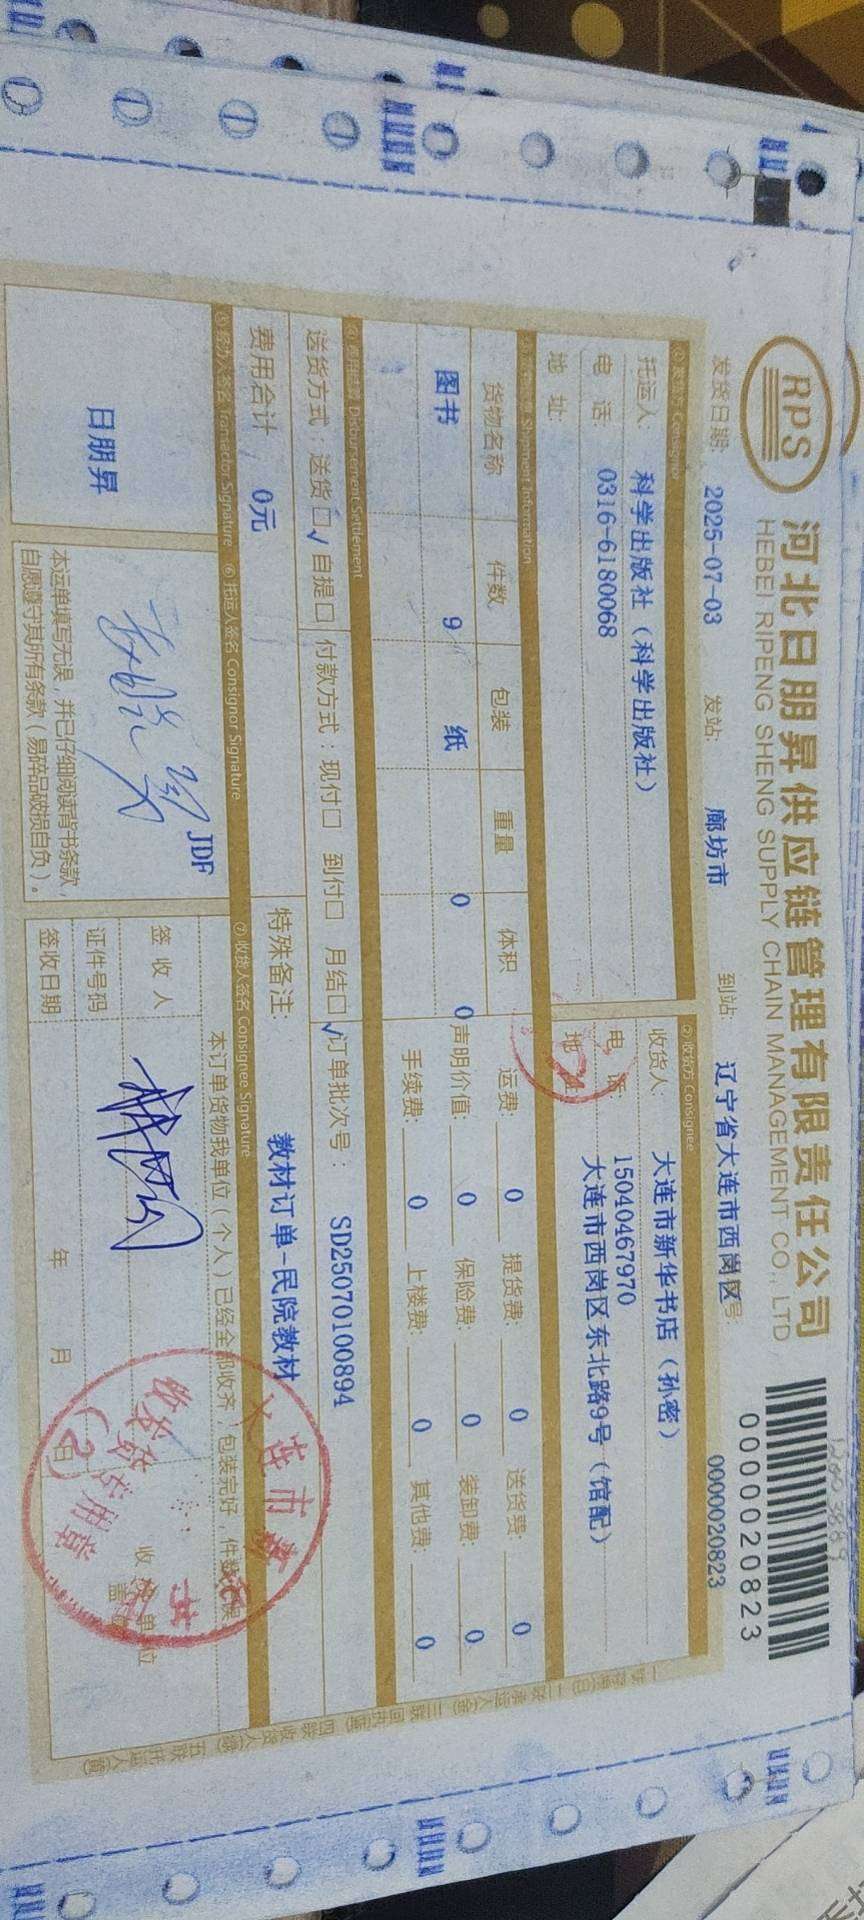 RPS
河北日朋昇供应链管理有限责任公司
HEBEI RIPENG SHENG SUPPLY CHAIN MANAGEMENT CO., LTD
0000020823
发货日期: 2025-07-03 发站: 廊坊市 到站: 辽宁省大连市西岗区 号 0000020823
① 发货方 Consignor ② 收货方 Consignee
托运人: 科学出版社（科学出版社） 收货人: 大连市新华书店（孙密）
电 话: 0316-6180068 电 话: 15040467970
地 址: 地 大连市西岗区东北路9号（馆配）
货物名称 件数 包装 重量 体积 运费: 0 提货费: 0 送货费: 0
图书 9 纸 0 0 声明价值: 0 保险费: 0 装卸费: 0
手续费: 0 上楼费: 0 其他费: 0
Disbursement Settlement
送货方式：送货□√ 自提□ 付款方式：现付□ 到付□ 月结□√ 订单批次号： SD25070100894
费用合计 0元 特殊备注: 教材订单-民院教材
Transactor Signature ⑥ 托运人签名 Consignor Signature ⑦ 收货人签名 Consignee Signature
日朋昇
JDF
本运单填写无误，并已仔细阅读背书条款，
自愿遵守其所有条款（易碎品破损自负）。
本订单货物我单位（个人）已经全部收齐，包装完好，件数无误
签 收 人
证件号码
签收日期 年 月 日
收货单位
大连市新
(2)